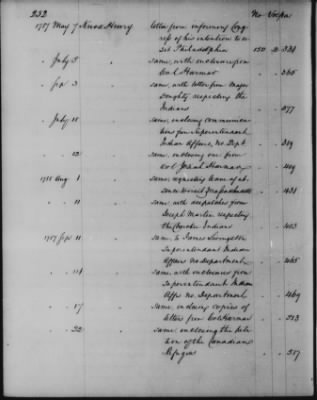 232
No Vo Pa
1787 May 7 Knox Henry letter from informing Cong
ress of his intention to vi
sit Philadelphia 150 2 321
" July 5 " same, with enclosure from
Col Harmar " " 365
" Sep 3 " same, with letter from Major
Doughty respecting the
Indians " " 477
" July 18 " same, enclosing communica
tions from Superintendant
Indian Affairs, No. Dept
" " same, enclosing one from
Col Josiah Harmar
1788 Aug 1 " same, requesting leave of ab
sence
" " 11 " same, with despatches from
Joseph Martin respecting
the Cherokee Indians " " 403
1787 Sep 11 " same, to James Livingston
Superintendant Indian
Affairs No. Department " " 465
" " " same, with enclosures from
Superintendant Indian
Affrs No. Department " " 469
" " 17 " same, enclosing copies of
letters from Col Harmar " "
" " 22 " same, enclosing the peti
tion of the Canadian
Refugees " " 517